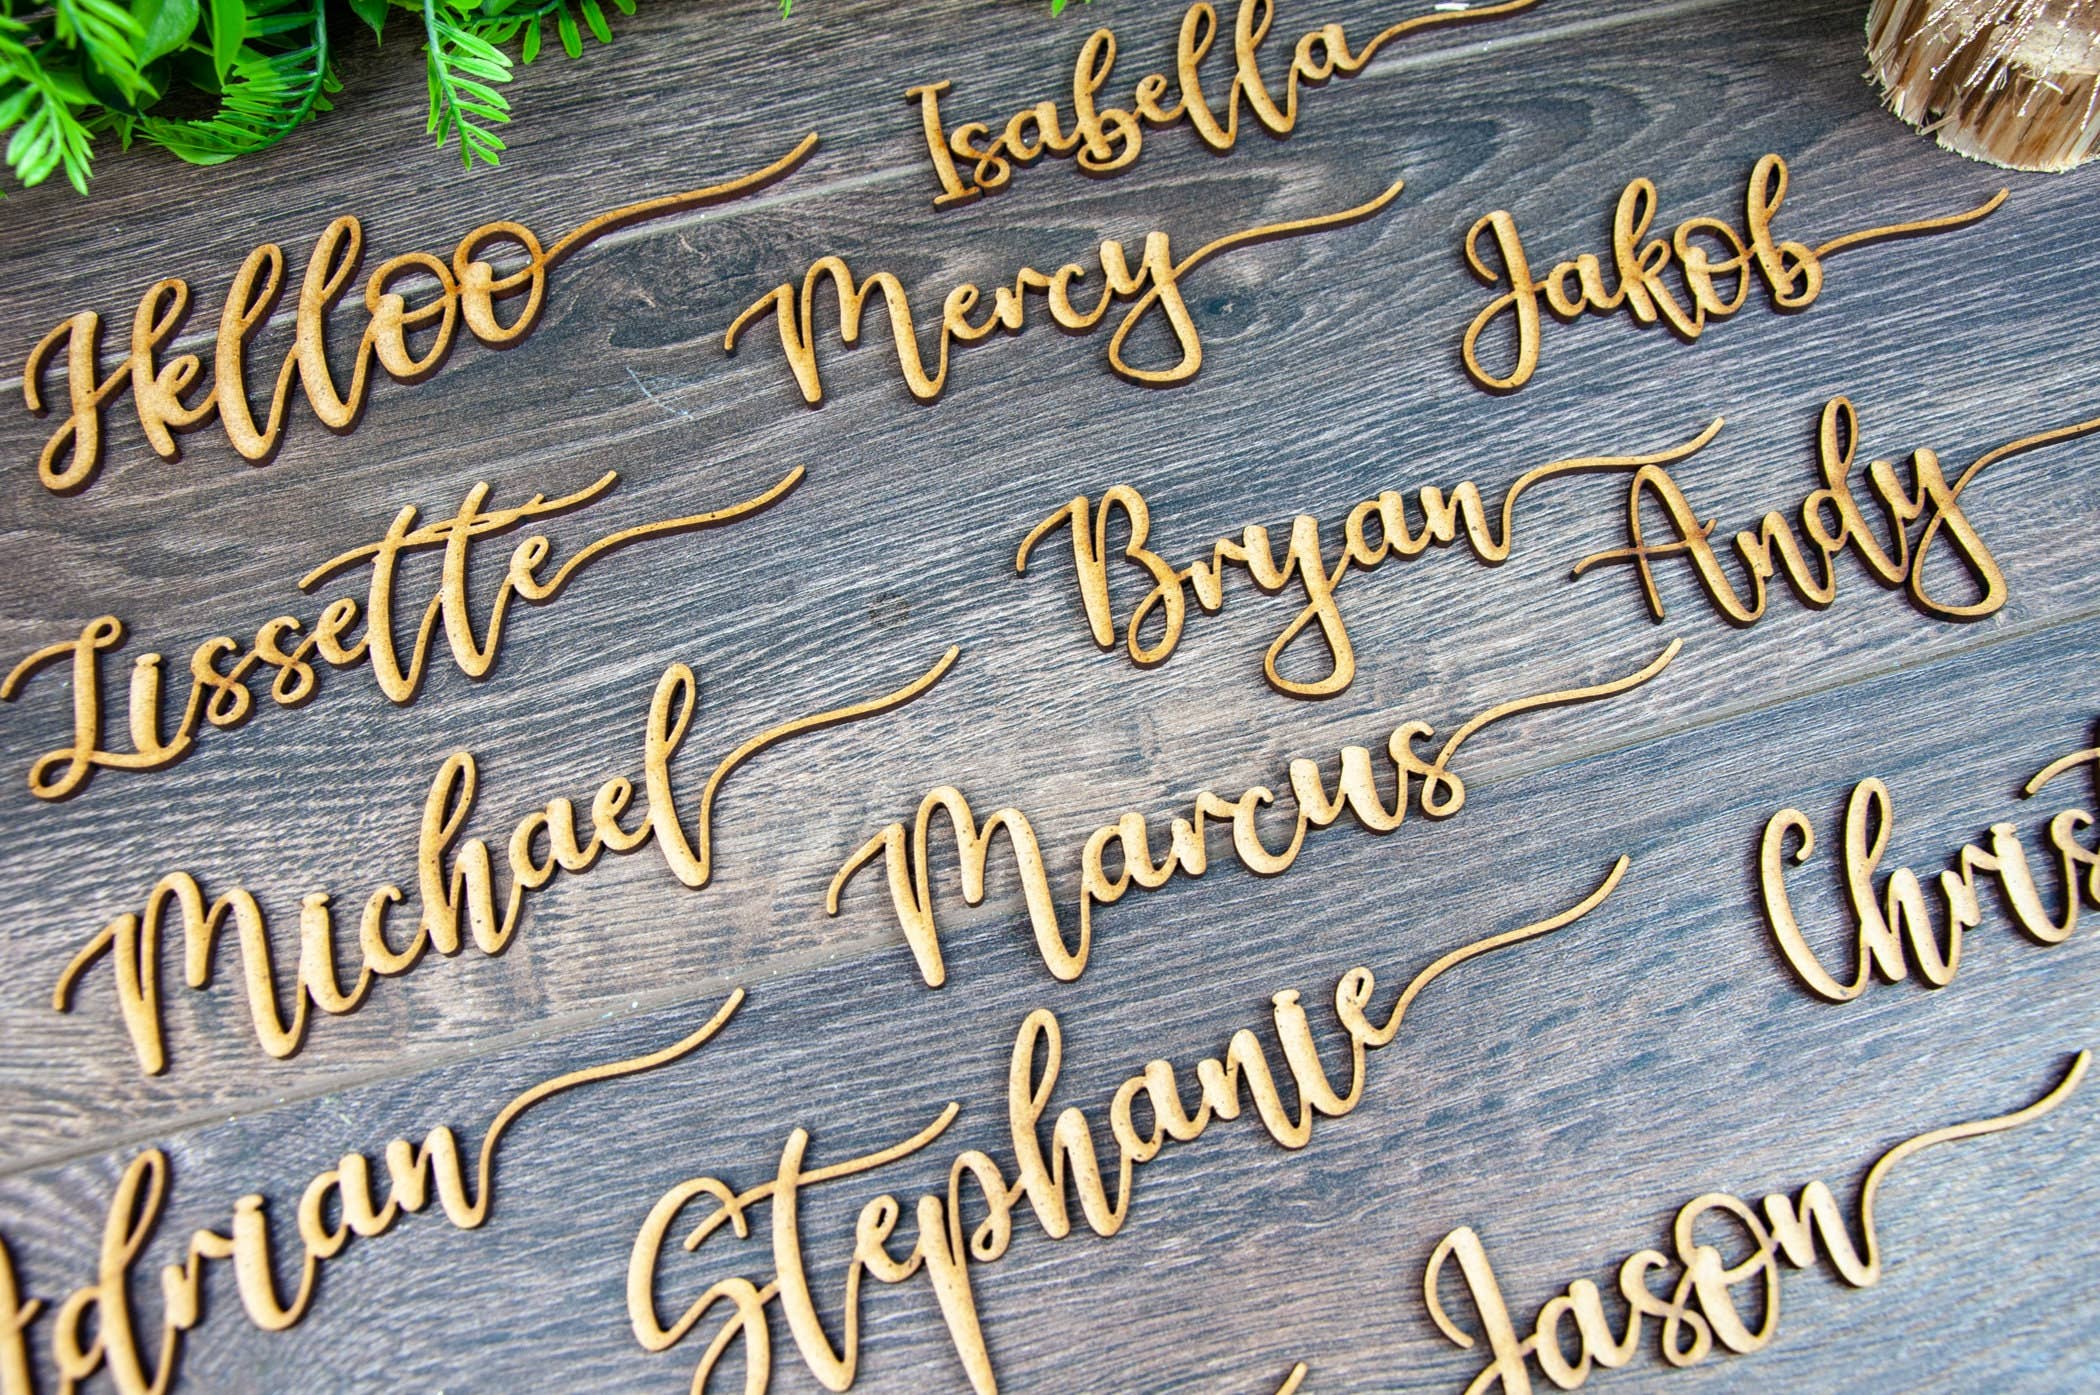 Isabella
Hklloo
Mercy
Jakob
Lissette
Bryan
Andy
Michael
Marcus
Chris
Adrian
Stephanie
Jason